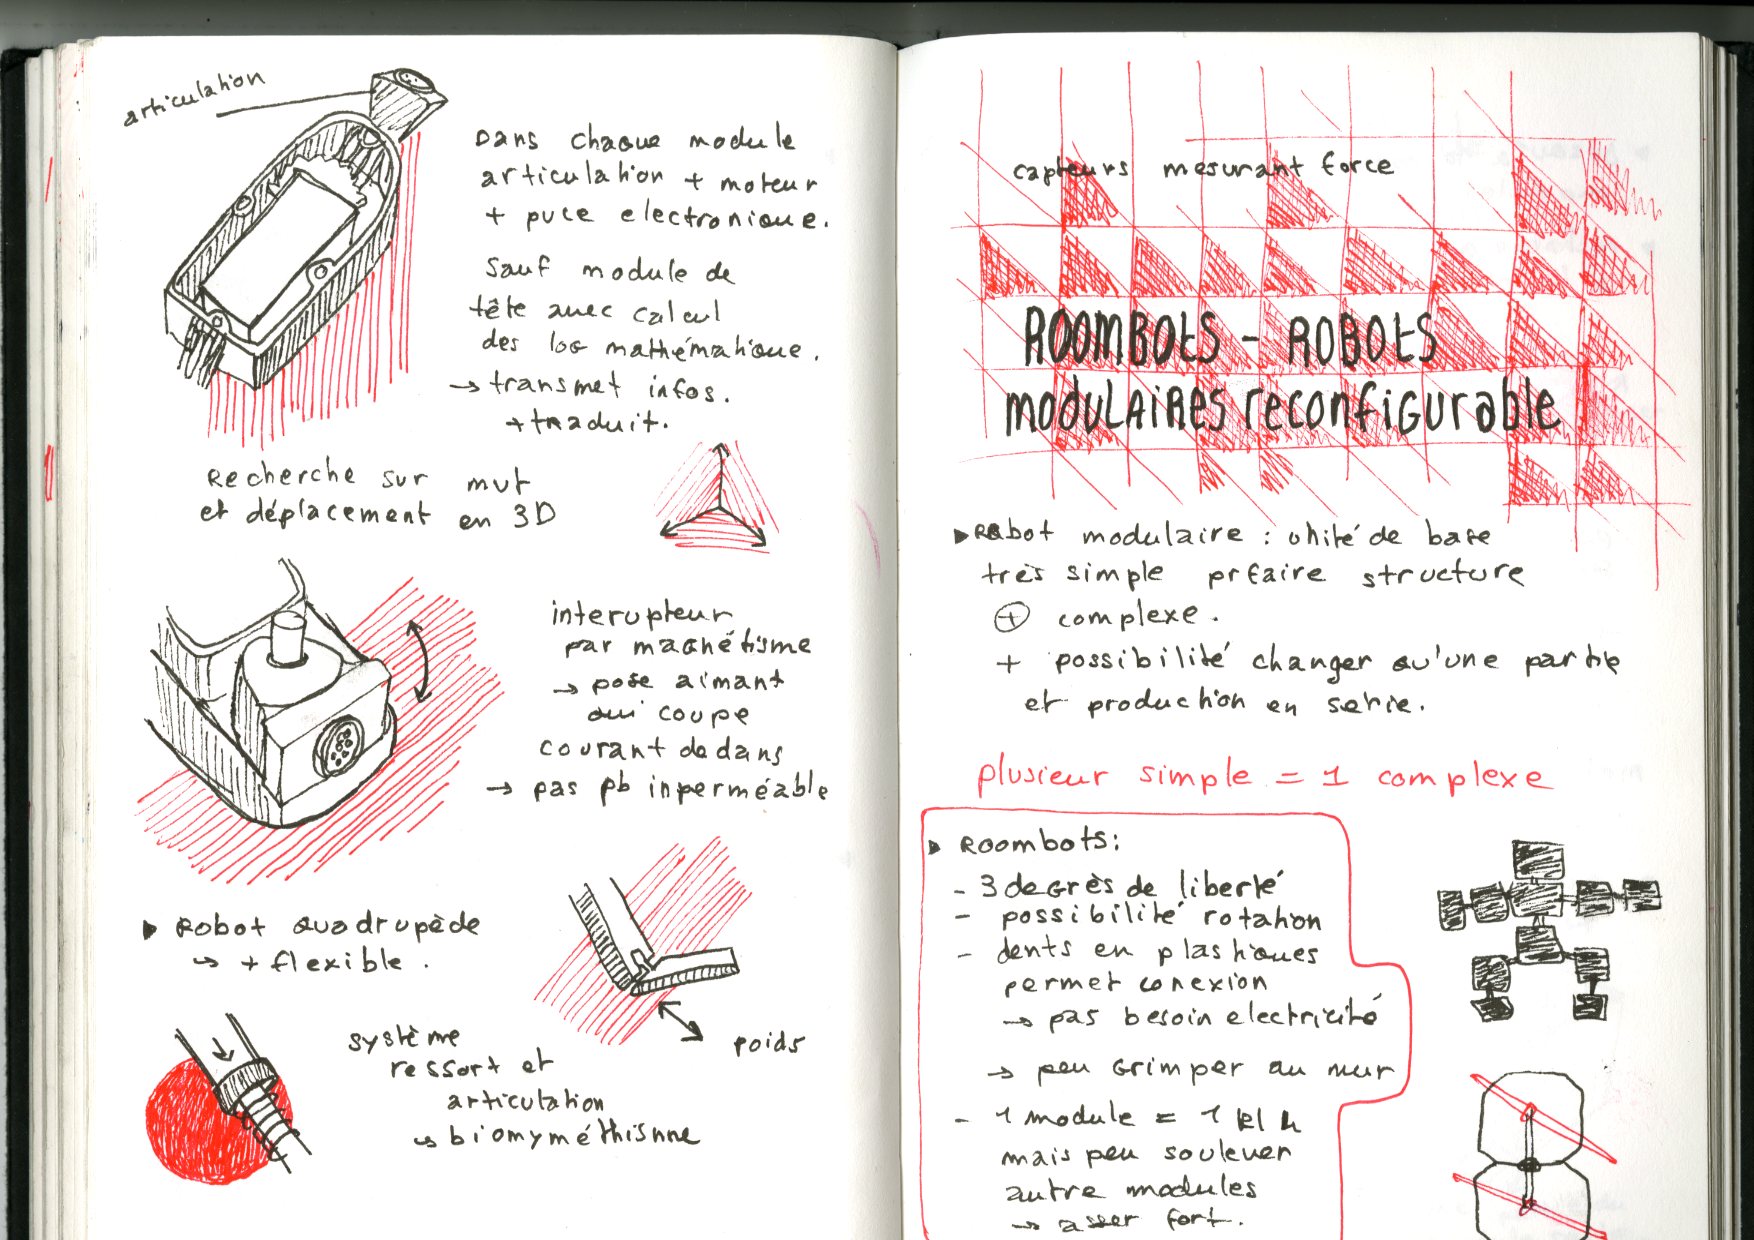 articulation
Dans chaque module
articulation + moteur
+ puce electronique.
Sauf module de
tête avec calcul
des log mathématique.
→ transmet infos.
+ traduit.
Recherche sur mvt
et déplacement en 3D
interupteur
par magnétisme
→ pose aimant
qui coupe
courant dedans
→ pas pb inperméable
▶ Robot quadrupède
↳ + flexible.
poids
système
ressort et
articulation
↳ biomyméthisme
capteurs mesurant force
ROOMBOTS - ROBOTS
MODULAIRES reconfigurable
▶ Robot modulaire : unité de base
très simple pr faire structure
⊕ complexe.
+ possibilité changer qu'une partie
et production en serie.
plusieur simple = 1 complexe
▶ Roombots:
- 3 degrès de liberté
- possibilité rotation
- dents en plastiques
permet conexion
→ pas besoin electricité
→ peu grimper au mur
- 1 module = 1
mais peu soulever
autre modules
→ asser fort.